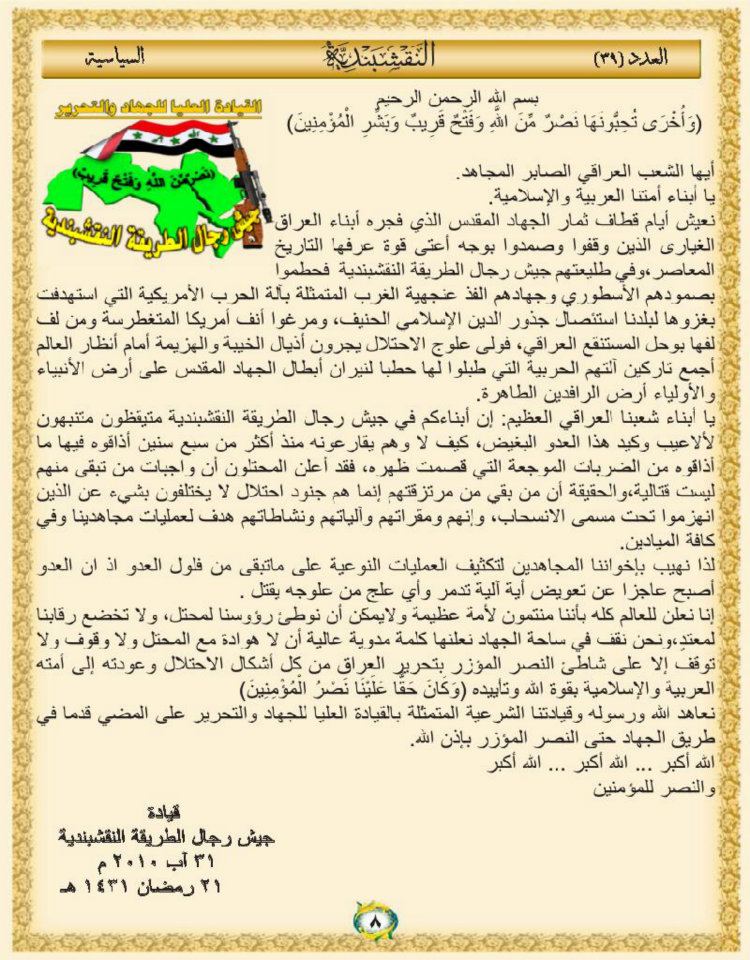 العدد (٣٩) النقشبندية السياسية
القيادة العليا للجهاد والتحرير
(نصر من الله وفتح قريب)
جيش رجال الطريقة النقشبندية
بسم الله الرحمن الرحيم
(وَأُخْرَى تُحِبُّونَهَا نَصْرٌ مِّنَ اللَّهِ وَفَتْحٌ قَرِيبٌ وَبَشِّرِ الْمُؤْمِنِينَ)
أيها الشعب العراقي الصابر المجاهد.
يا أبناء أمتنا العربية والإسلامية.
نعيش أيام قطاف ثمار الجهاد المقدس الذي فجره أبناء العراق
الغيارى الذين وقفوا وصمدوا بوجه أعتى قوة عرفها التاريخ
المعاصر،وفي طليعتهم جيش رجال الطريقة النقشبندية فحطموا
بصمودهم الأسطوري وجهادهم الفذ عنجهية الغرب المتمثلة بآلة الحرب الأمريكية التي استهدفت
بغزوها لبلدنا استئصال جذور الدين الإسلامي الحنيف، ومرغوا أنف أمريكا المتغطرسة ومن لف
لفها بوحل المستنقع العراقي، فولى علوج الاحتلال يجرون أذيال الخيبة والهزيمة أمام أنظار العالم
أجمع تاركين آلتهم الحربية التي طبلوا لها حطبا لنيران أبطال الجهاد المقدس على أرض الأنبياء
والأولياء أرض الرافدين الطاهرة.
يا أبناء شعبنا العراقي العظيم: إن أبناءكم في جيش رجال الطريقة النقشبندية متيقظون متنبهون
لألاعيب وكيد هذا العدو البغيض، كيف لا وهم يقارعونه منذ أكثر من سبع سنين أذاقوه فيها ما
أذاقوه من الضربات الموجعة التي قصمت ظهره، فقد أعلن المحتلون أن واجبات من تبقى منهم
ليست قتالية،والحقيقة أن من بقي من مرتزقتهم إنما هم جنود احتلال لا يختلفون بشيء عن الذين
انهزموا تحت مسمى الانسحاب، وإنهم ومقراتهم وآلياتهم ونشاطاتهم هدف لعمليات مجاهدينا وفي
كافة الميادين.
لذا نهيب بإخواننا المجاهدين لتكثيف العمليات النوعية على ماتبقى من فلول العدو اذ ان العدو
أصبح عاجزا عن تعويض أية آلية تدمر وأي علج من علوجه يقتل .
إنا نعلن للعالم كله بأننا منتمون لأمة عظيمة ولايمكن أن نوطئ رؤوسنا لمحتل، ولا تخضع رقابنا
لمعتدٍ،ونحن نقف في ساحة الجهاد نعلنها كلمة مدوية عالية أن لا هوادة مع المحتل ولا وقوف ولا
توقف إلا على شاطئ النصر المؤزر بتحرير العراق من كل أشكال الاحتلال وعودته إلى أمته
العربية والإسلامية بقوة الله وتأييده (وَكَانَ حَقًّا عَلَيْنَا نَصْرُ الْمُؤْمِنِينَ)
نعاهد الله ورسوله وقيادتنا الشرعية المتمثلة بالقيادة العليا للجهاد والتحرير على المضي قدما في
طريق الجهاد حتى النصر المؤزر بإذن الله.
الله أكبر ... الله أكبر ... الله أكبر
والنصر للمؤمنين
قيادة
جيش رجال الطريقة النقشبندية
٣١ آب ٢٠١٠ م
٢١ رمضان ١٤٣١ هـ
٨